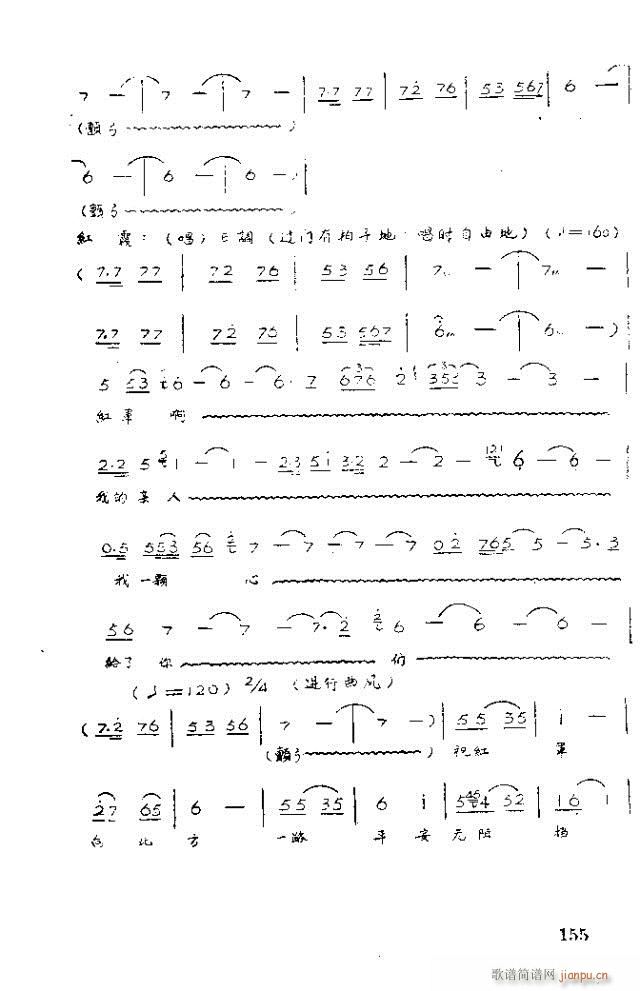 7 — 7 — 7 — | 7.7 77 | 72 76 | 53 567 | 6 —
(顫弓)
6 — 6 — 6 — |
(顫弓)
紅霞:(唱)E調(过门有拍子地 唱时自由地)(♩=160)
(7.7 77 | 72 76 | 53 56 | 7 — 7 — |
7.7 77 | 72 76 | 53 567 | 6 — 6 —)
5 53 6 — 6 — 6. 7 676 2 353 3 — 3 — |
紅軍啊
2.2 5 1 — 1 — 2.3 5i 3.2 2 — 2 — 6 — 6 — |
我的亲人
0.5 553 56 7 — 7 — 7 — 7 02 765 5 — 5.3
我一顆 心
56 7 — 7 — 7. 2 6 — 6 — 6 — |
給了 你 們
(♩=120) 2/4 (进行曲风)
(7.2 76 | 53 56 | 7 — 7 —) | 55 35 | i — |
(顫弓) 祝紅 軍
27 65 | 6 — | 55 35 | 6 i | 54 52 | 16 1 |
向北 方 一路 平安无阻 挡
155
歌谱简谱网 jianpu.cn